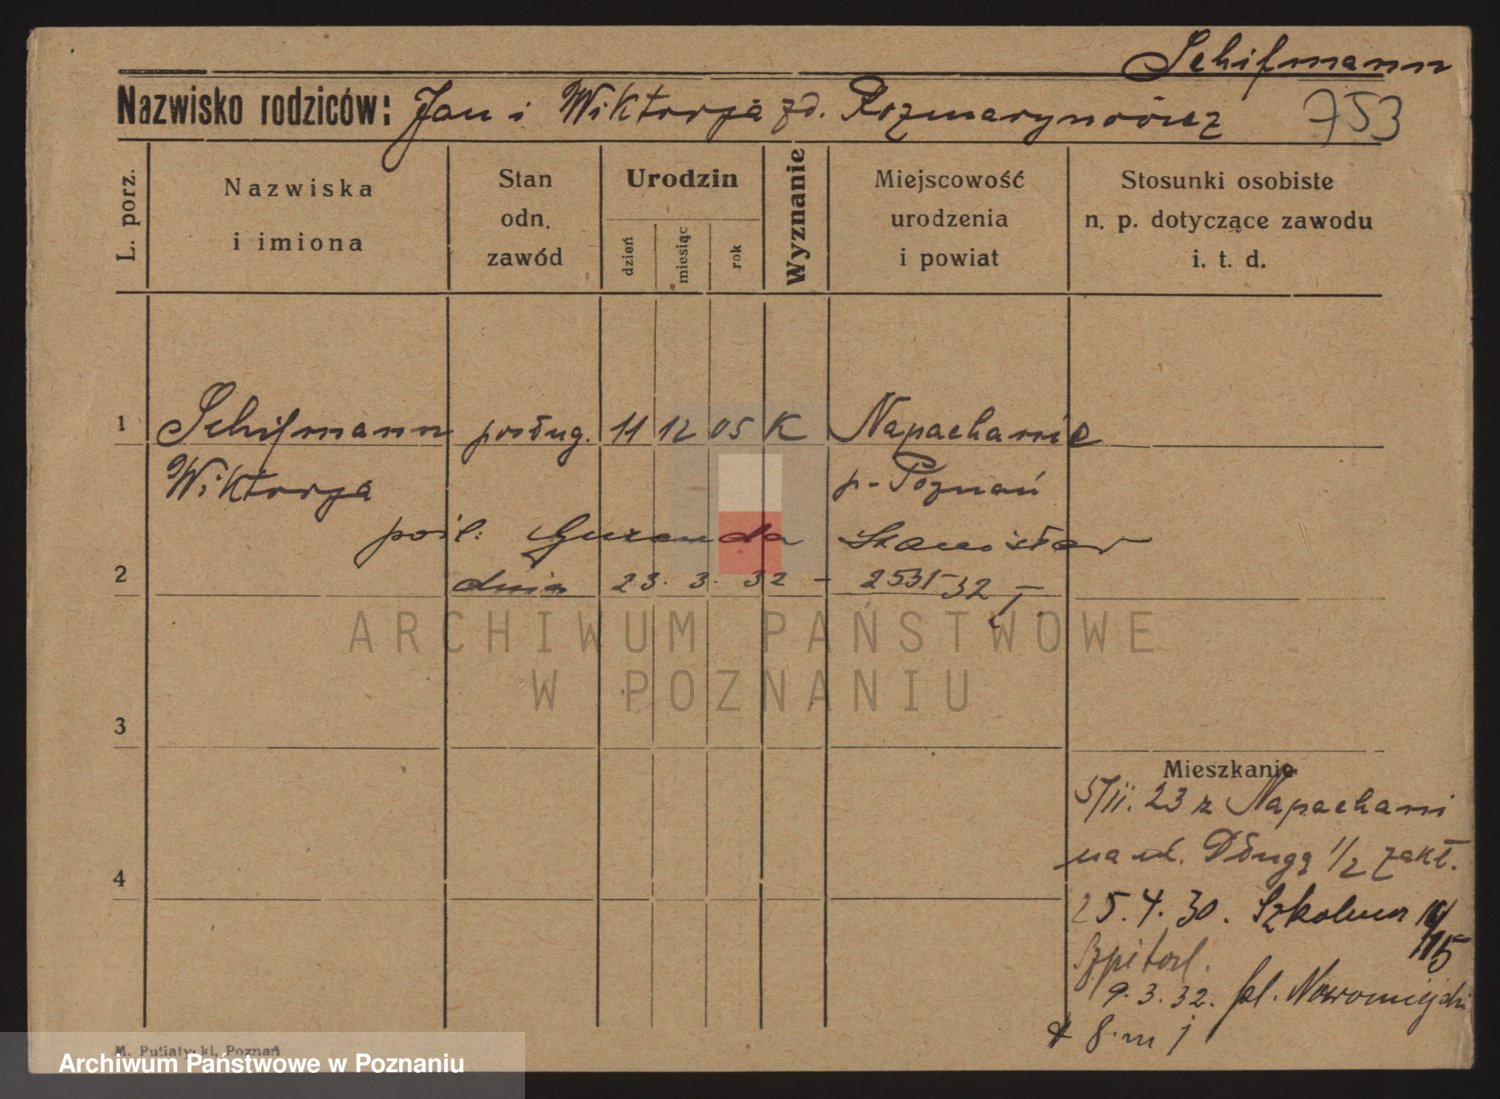 Schifmann
Nazwisko rodziców: Jan i Wiktorja zd. Rozmarynowicz 753
L. porz.
Nazwiska
i imiona
Stan
odn.
zawód
Urodzin
dzień
miesiąc
rok
Wyznanie
Miejscowość
urodzenia
i powiat
Stosunki osobiste
n. p. dotyczące zawodu
i. t. d.
1 Schifmann posług. 11 12 05 K Napachanie
Wiktorja p. Poznań
pośl: Stanisław
2 dnia 23. 3. 32 - 2531 32 I.
ARCHIWUM PAŃSTWOWE
W POZNANIU
3
Mieszkanie
5/II. 23 z Napachani
na ul. Długą 1/2 zakł.
4
25. 4. 30. Szkolna
Szpital.
9. 3. 32. pl. Nowomiejski
8. m 1
M. Putiatycki, Poznań
Archiwum Państwowe w Poznaniu